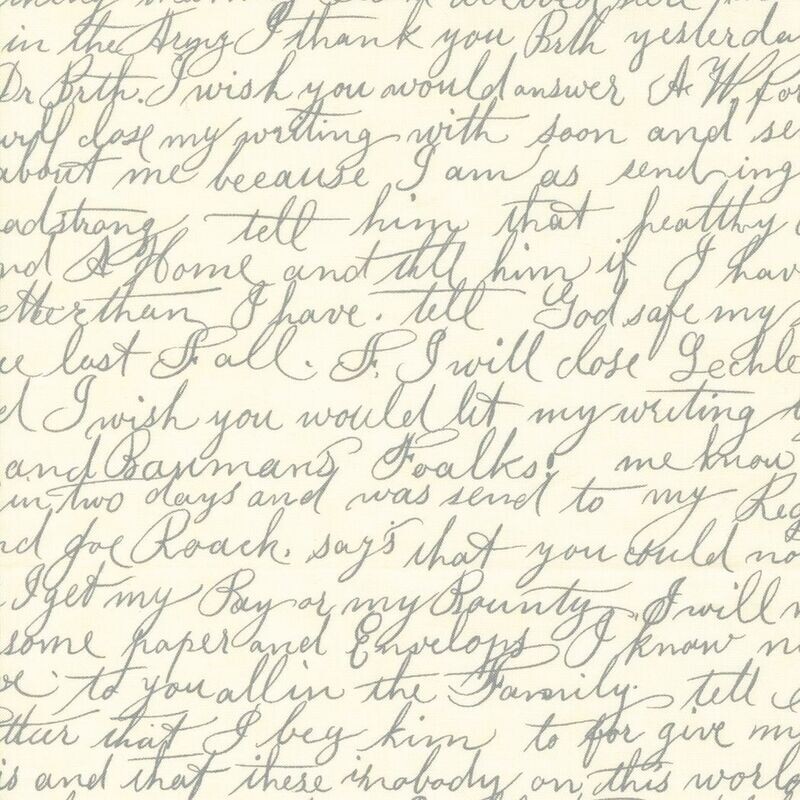 in the Army I thank you Brth yesterda
Dr Brth. I wish you would answer A W. for
will close my writing with soon and se
about me because I am as send-ing
adstrong tell him that healthy
nd A Home and till him if I hav
etter than I have. tell God safe my
ue last Fall. F. I will close Lechle
d I wish you would let my writing
and Baumans Foalks. me know
in two days and was send to my Reg
nd Joe Roack. say's that you could no
I get my Pay or my Bounty I will
some paper and Envelops I know n
to you all in the Family. tell
that I beg him to for give my
is and that there is nobody on this world